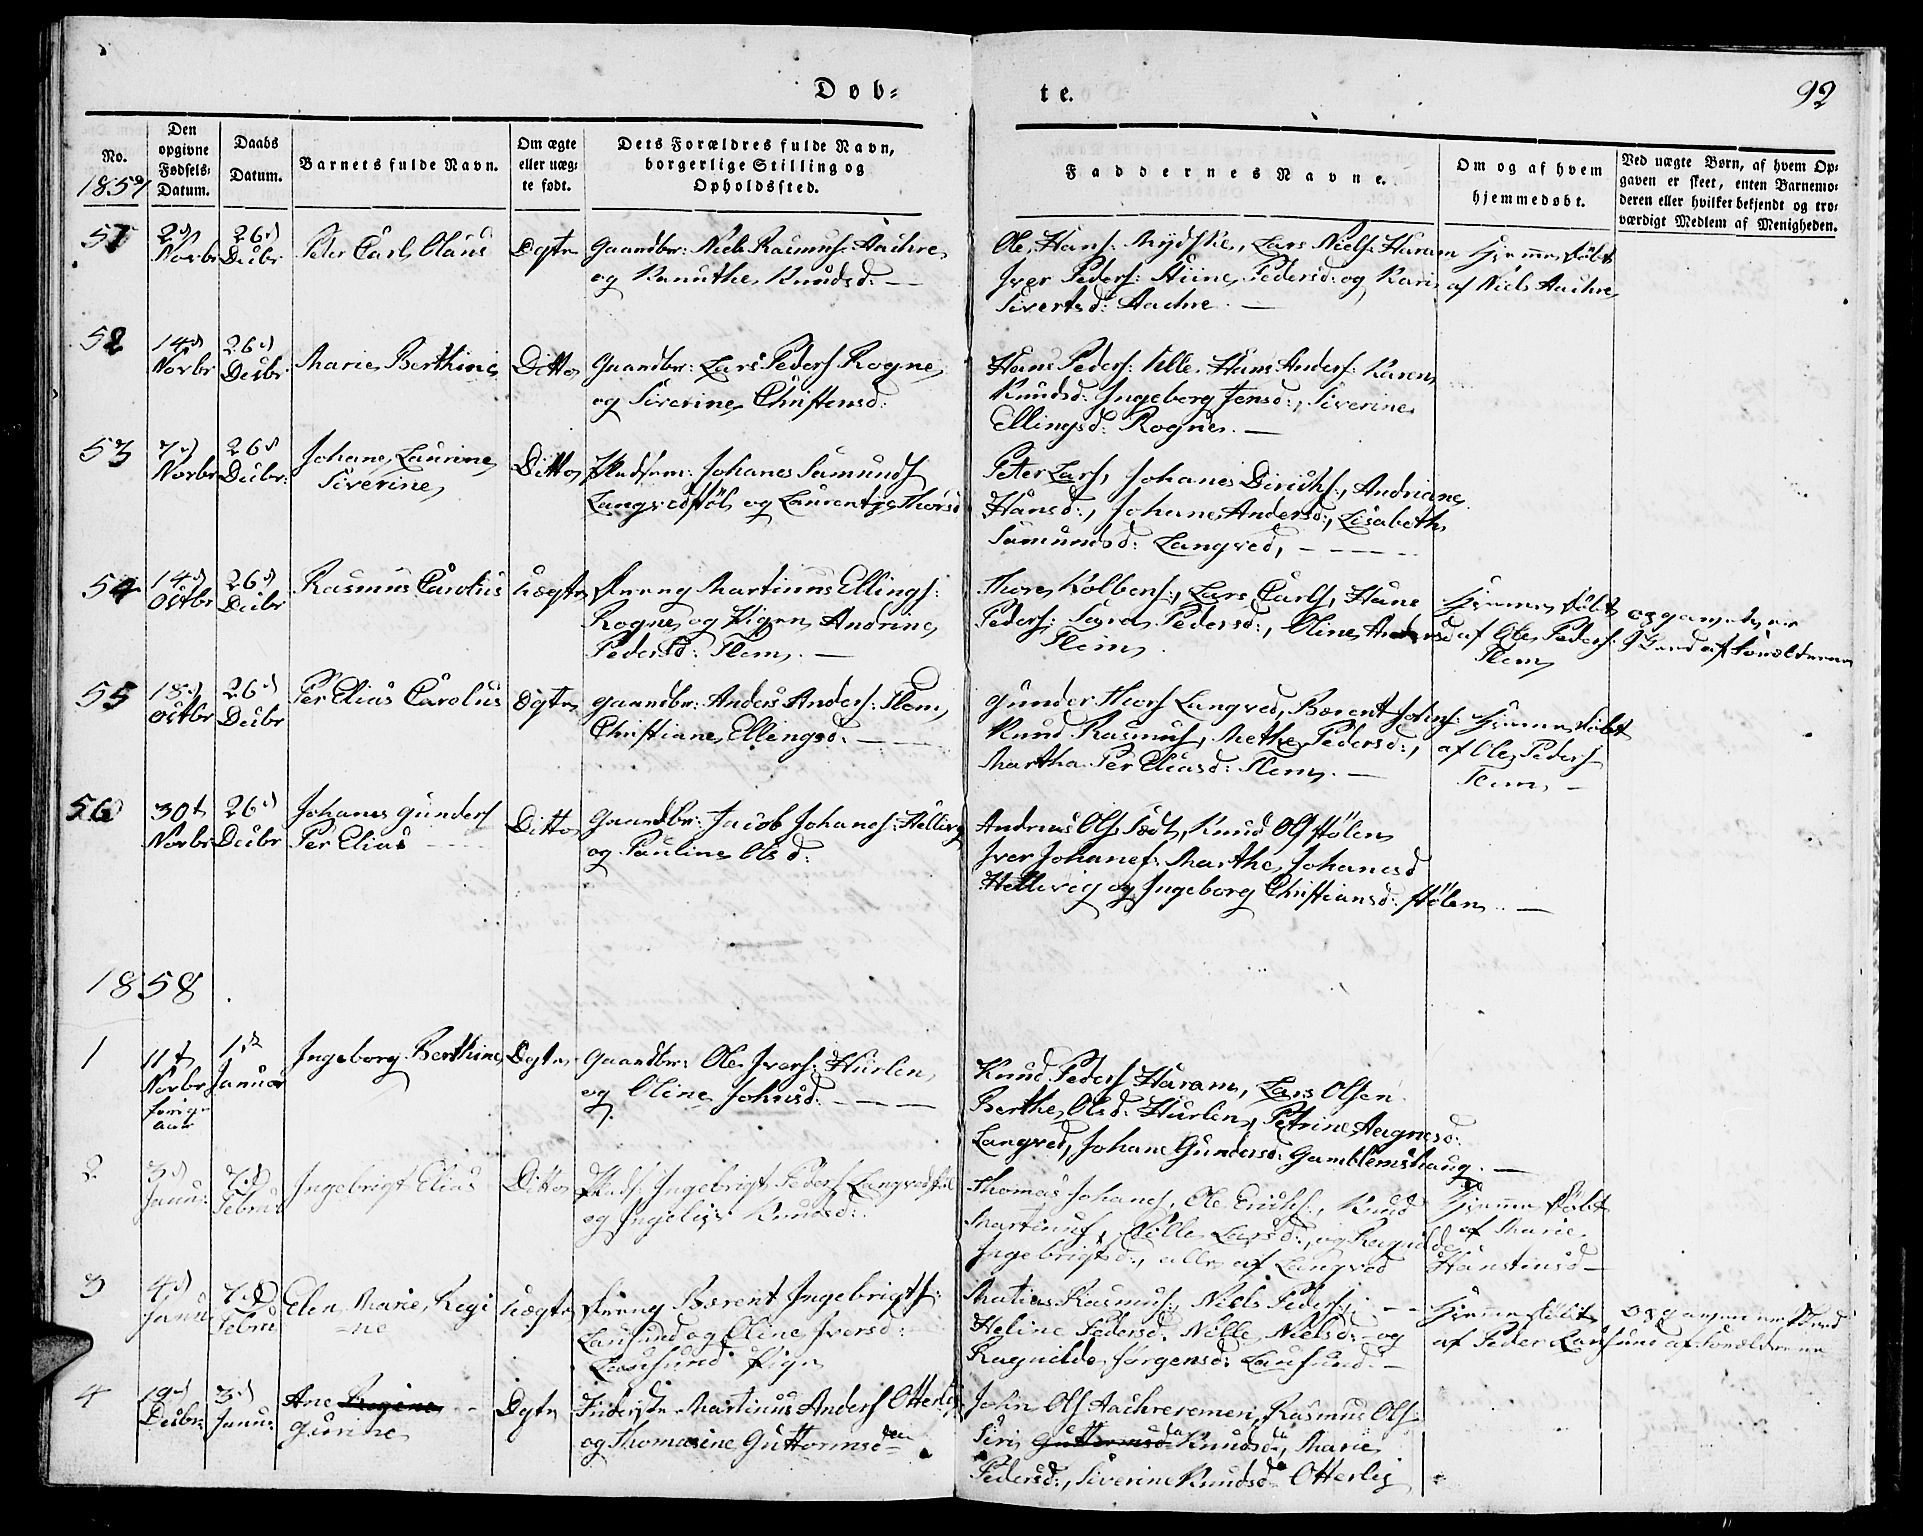 Døb=
te.
92
No.
1857
Den
opgivne
Fødsels-
Datum.
Daabs
Datum.
Barnets fulde Navn.
Om ægte
eller uæg-
te født.
Dets Forældres fulde Navn,
borgerlige Stilling og
Opholdssted.
Faddernes Navne.
Om og af hvem
hjemmedøbt.
Ved uægte Børn, af hvem Op-
gaven er skeet, enten Barnemo-
deren eller hvilket bekjendt og tro-
værdigt Medlem af Menigheden.
51
Novbr
26d
Decbr
Peder Carl Olaus
Ægte
Gaardbr: Niels Rasmus: Aachre
og Knuthe Knudsd:
Ole Hans: Mydske, Lars Niels: Haram
Iver Peders: Stine Pedersd: og Kari
Sivertsd: Aachre.
Hjemmedøbt
af Niels Aachre
52
14d
Novbr
26d
Decbr
Marie Berthine
Ditto
Gaardbr: Lars Peders Rogne
og Siverine Christensd:
Hans Peders: Ulle Hans Anders: Karen
Knudsd: Ingeborg Jensd:, Siverine
Ellingsd: Rogne.
53
7d
Novbr
26d
Decbr:
Johane Laurine
Siverine
Ditto
Pladsm: Johanes Samunds
Langvedstøl og Laurentze Thorsd
Peter Lars, Johanes Dirichs:, Andriane
Hansd:, Johane Andersd:, Lisabeth
Samundsd: Langved,
54
14d
Octbr
26d
Decbr
Rasmus Carolus
Uægte
Dreng Martinus Ellings:
Rogne og Pigen Andrine
Pedersd: Flem.
Thore Kolbens:, Lars Carls, Hans
Peders: Sara Pedersd:, Oline Andersd
Flem
Hjemmedøbt
af Ole Peders:
Flem
opgaven er
skeed af Forældrene
55
18d
Octbr
26d
Decbr
Per Elias Carolus
Ægte
Gaardbr: Anders Anders: Flem,
Christiane Ellingsd:
Gunder Thors Langved, Bærent Johns:
Knud Rasmus, Methe Pedersd:,
Martha Per Eliasd: Flem.
Hjemmedøbt
af Ole Peders
Flem
56
30t
Novbr
26d
Decbr
Johanes Gunders
Per Elias
Ditto
Gaardbr: Jacob Johanes: Hellevig
og Pauline Olsd:
Andreas Ols Sædt, Knud Ols Støle
Iver Johanes: Marthe Johanesd
Hellevig og Ingeborg Christiansd: Støle
1858
1
11t
Novbr
forrige
Aar
1st
Januar
Ingeborg Berthine
Ægte
Gaardbr: Ole Ivers: Hurlen
og Oline Johnsd:
Knud Peders Haram, Lars Olsen
Berthe Olsd: Hurlen, Petrine Aagnesd:
Langved, Johane Gundersd: Gamblemshaug.
2
3d
Janu:
7d
Februr
Ingebrigt Elias
Ditto
Plads: Ingebrigt Peders Langvedstøl
og Ingelize Knudsd:
Thomas Johanes, Ole Erichs:, Knud
Martinus, Nille Larsd:, og Ragnilde
Ingebrigtsd:, alle af Langved
Hjemmedøbt
af Marie
Hanstensd
3
4d
Janu
7d
Febru
Elen Marie Regi
ne
Uægte
Dreng Bærent Ingebrigts:
Lausund og Oline Iversd:
Lausund Pige
Matias Rasmus:, Niels Peders:,
Heline Pedersd: Nille Nielsd: og
Ragnilde Jørgensd: Lausund
Hjemmedøbt
af Peder Lausund
opgaven er skeed
af Forældrene
4
19d
Decbr:
3d
Janu:
Ane
Gurine
Ægte
Martinus Anders Otterlei
og Thomasine Guttormsd
John Ols Aachreremen, Rasmus Ols:
Siri Guttormsd Knudsd:, Marie
Pedersd:, Siverine Knudsd Otterlei